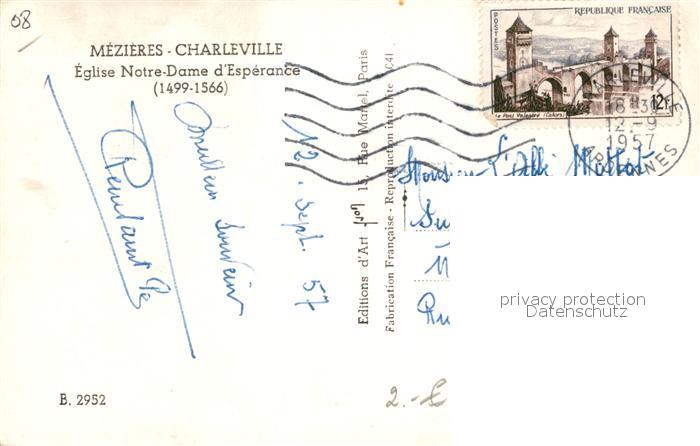 08
MÉZIÈRES - CHARLEVILLE
Église Notre-Dame d'Espérance
(1499-1566)
Meilleur Souvenir
12. Sept. 57
B. 2952
Editions d'Art yvon 15, Rue Martel, Paris
Fabrication Française - Reproduction interdite
POSTES
REPUBLIQUE FRANÇAISE
Le Pont Valentré (Cahors)
12F
CHARLEVILLE
18H30
12-9
1957
ARDENNES
Monsieur L'Abbé
privacy protection
Datenschutz
2.-€